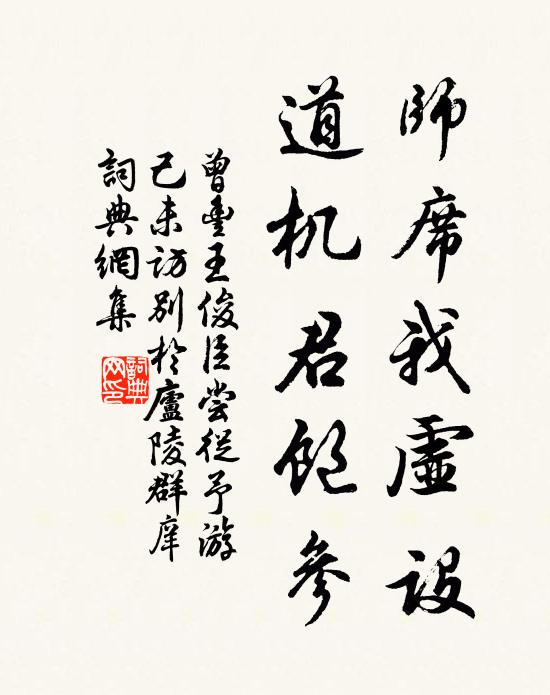 師席我虛設
道机君飽參
曾豊王俊臣嘗從予游
己未訪別於廬陵群庠
詞典網集
詞典
网印